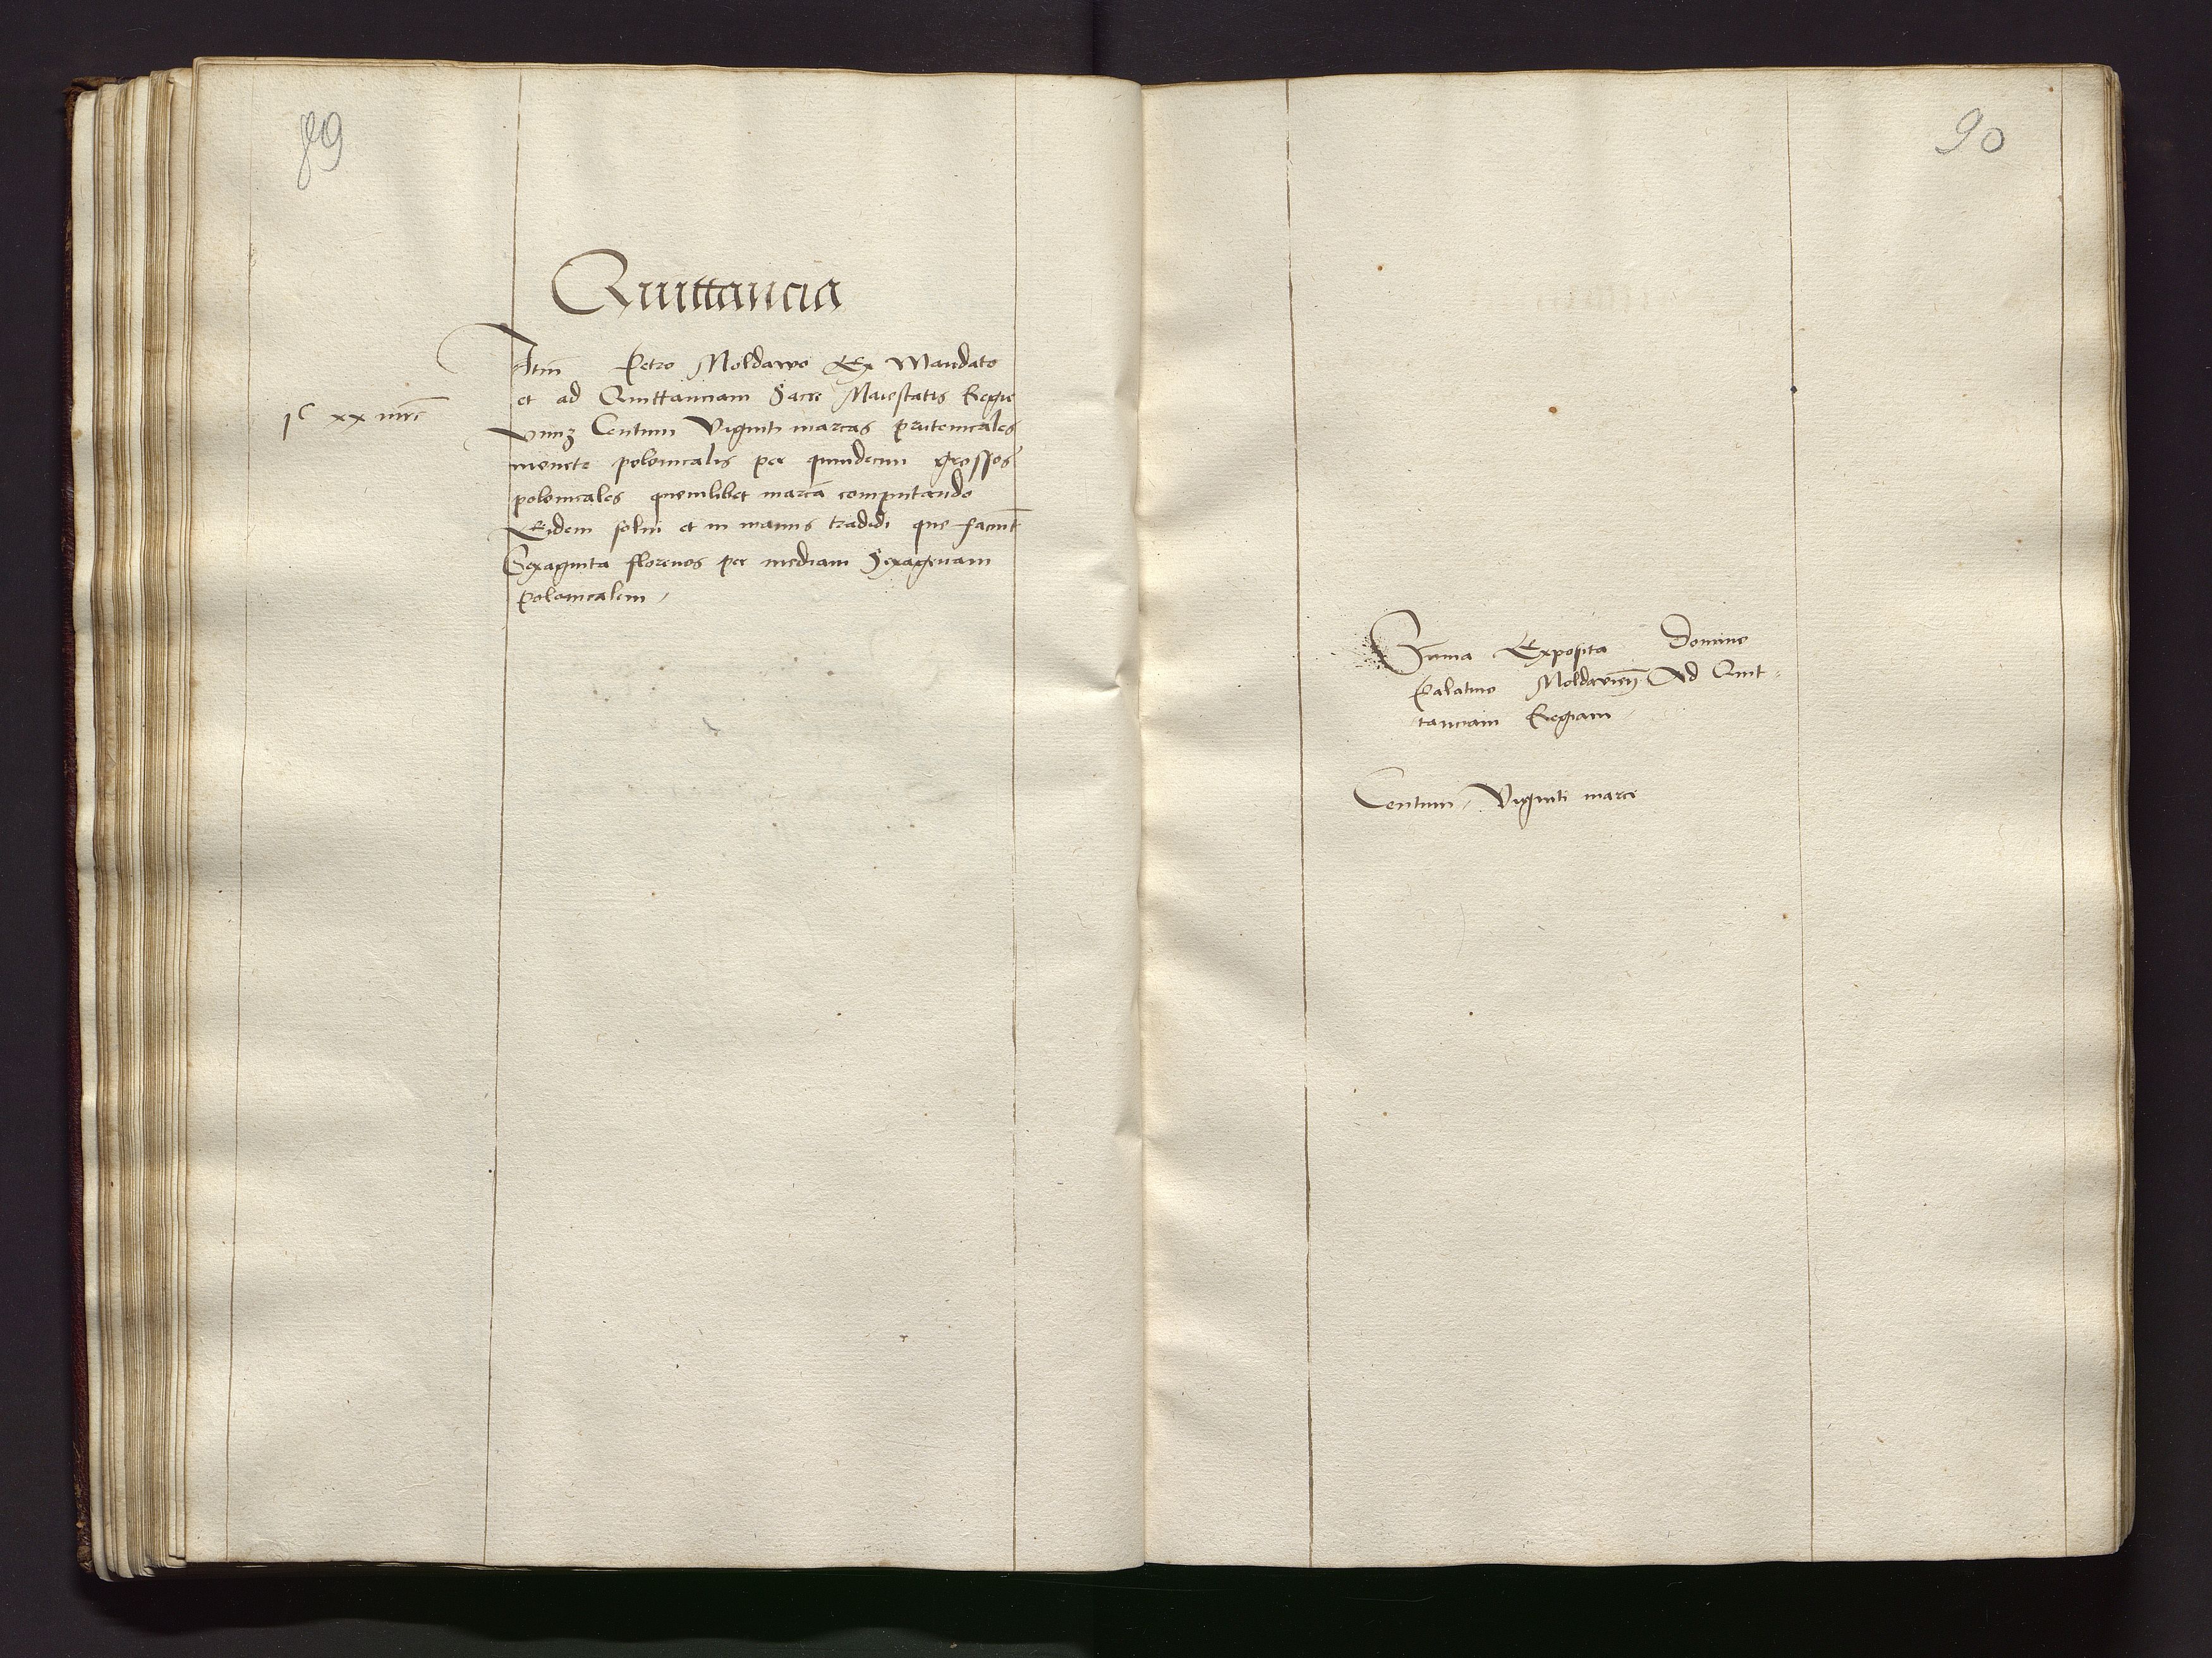 89
Quittancia
Itm Petro Moldawo Ex Mandato
et ad Quittanciam Sacre Maiestatis Regie
Centum Viginti marcas prutenicales
monete polonicalis per quindecim grossos
polonicales quemlibet marcā computando
Eidem solui et in manus tradidi que faciūt
Sexaginta florenos per mediam Sexagenam
Polonicalem
1c xx mrc
90
Sūma Exposita Domino
Palatino Moldavień Ad Quit-
tanciam Regiam
Centum Viginti marce